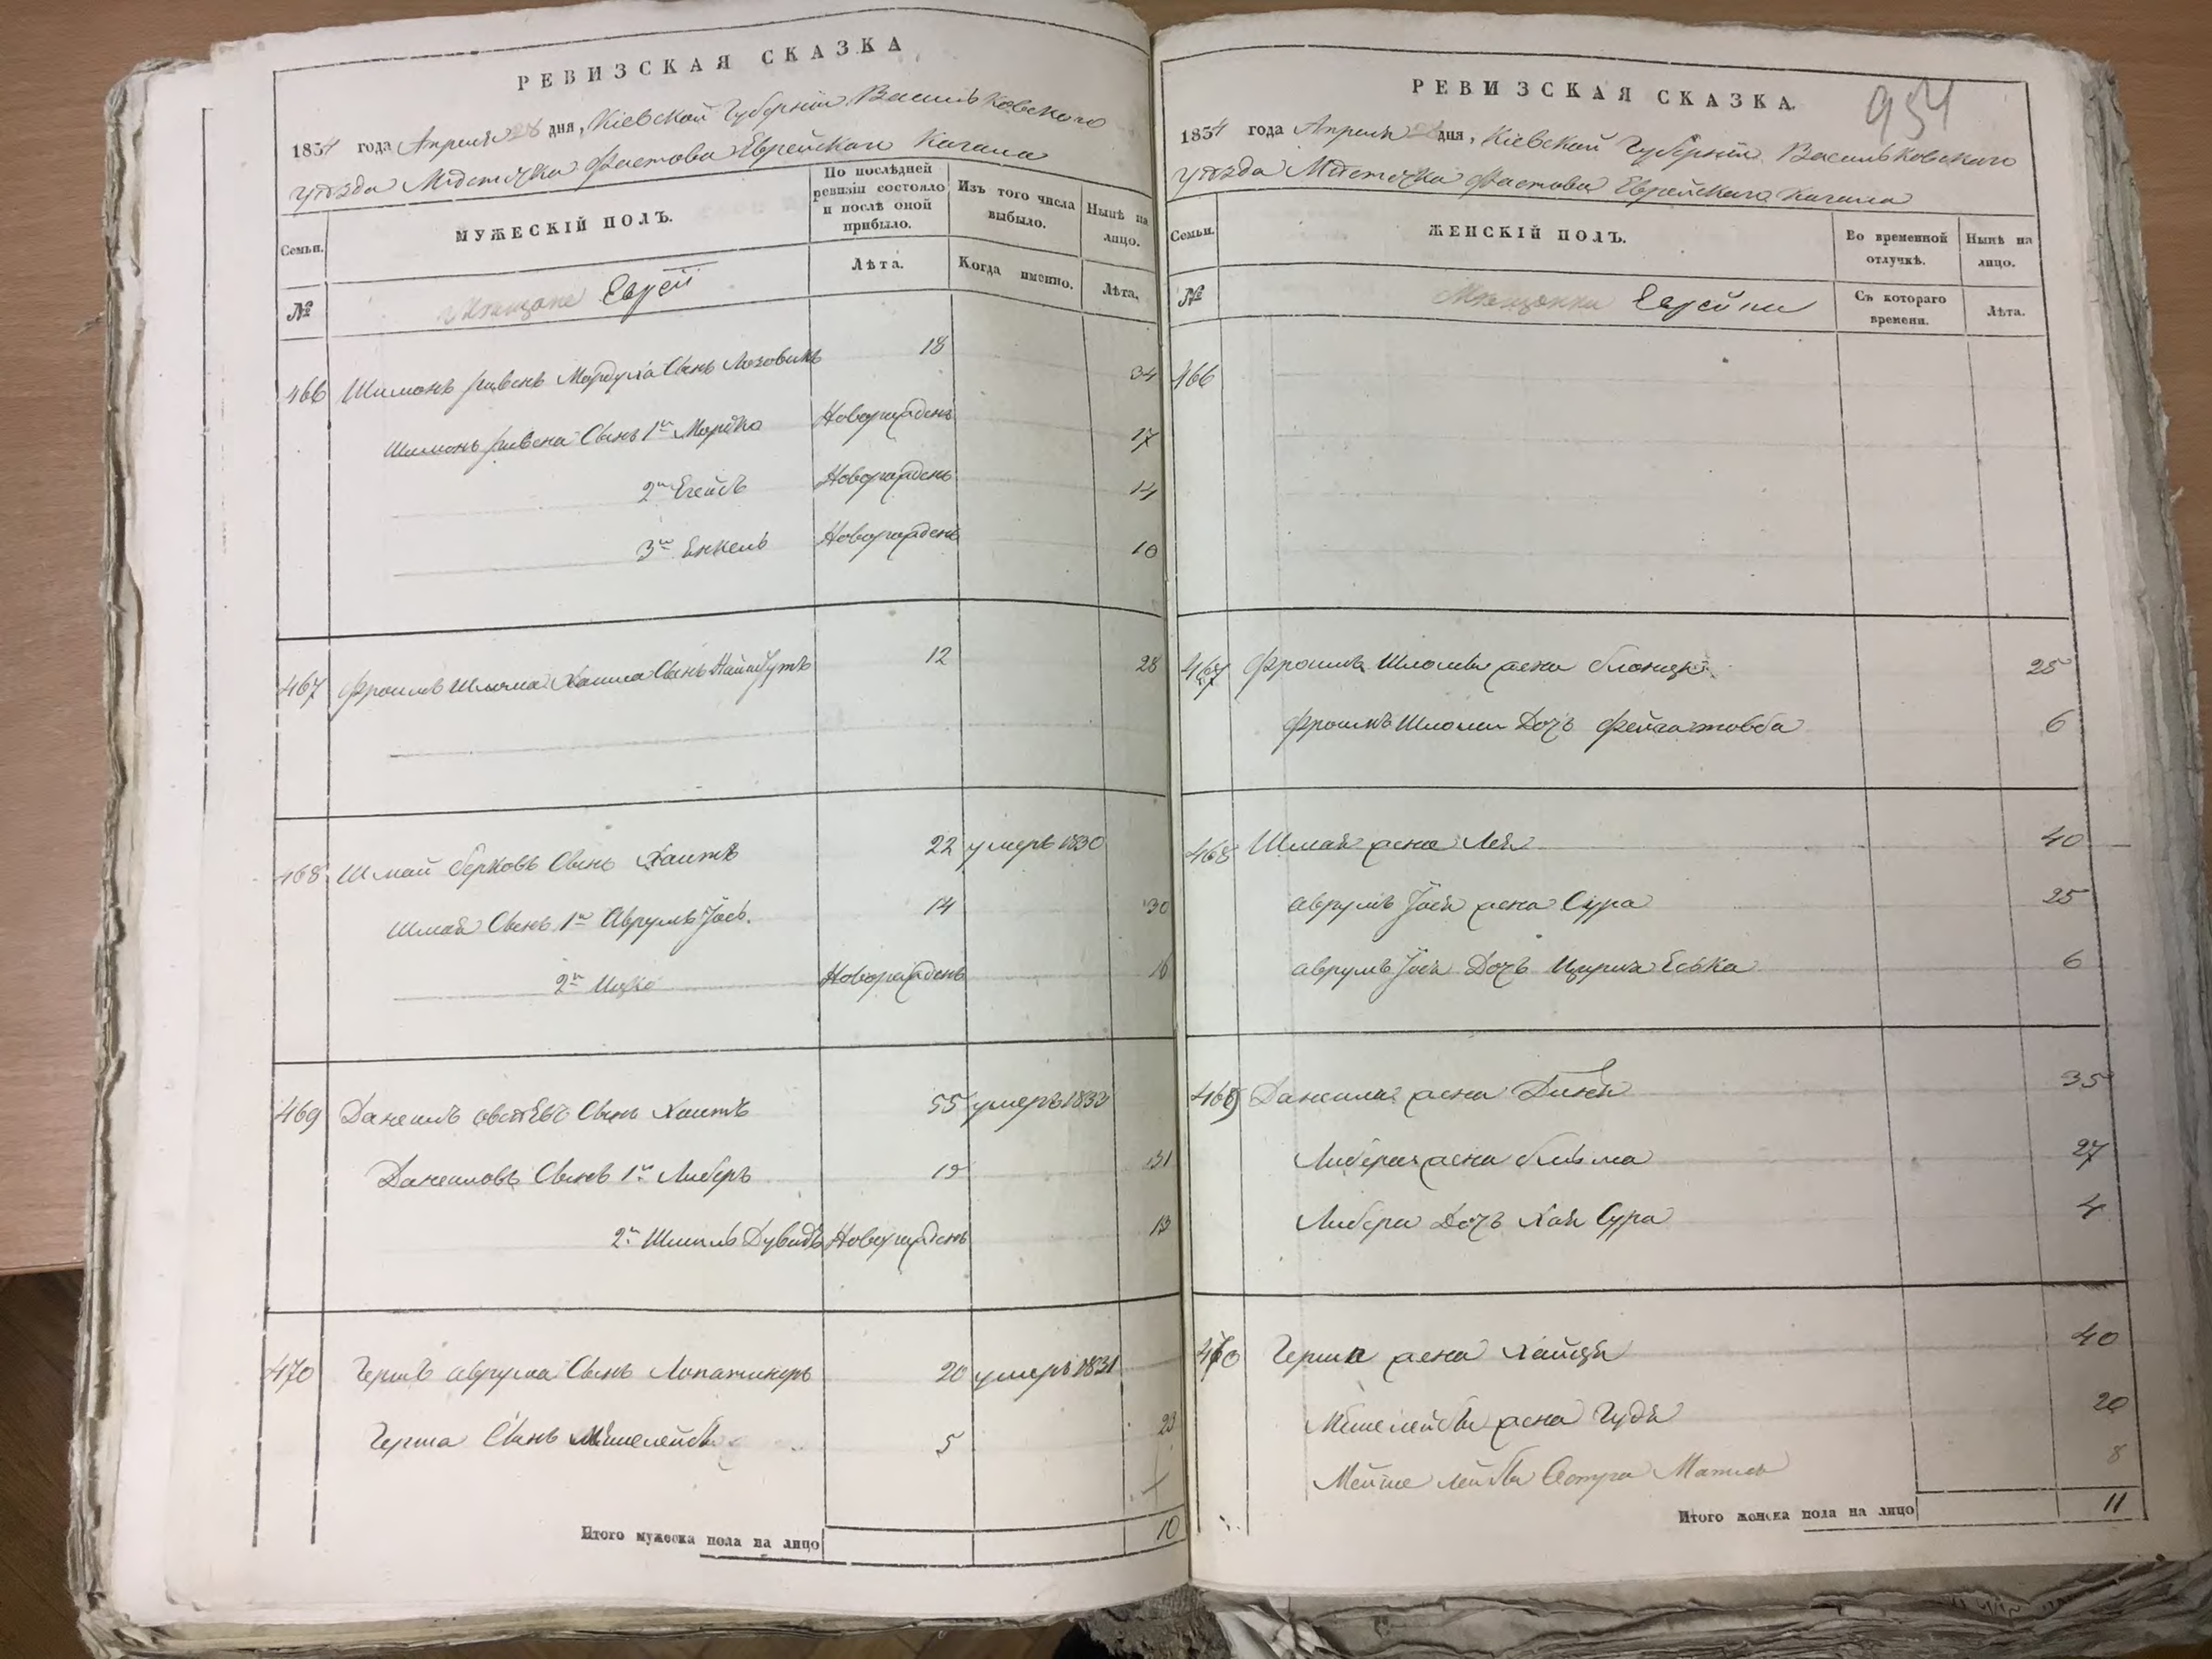 РЕВИЗСКАЯ СКАЗКА
1834 года Апреля 28 дня, Кіевской Губерніи Васильковского
уѣзда Мѣстечка Фастова Еврейскаго Кагала
Семьи.
МУЖЕСКІЙ ПОЛЪ.
По послѣдней ревизіи состояло и послѣ оной прибыло.
Изъ того числа выбыло.
Нынѣ на лицо.
Лѣта.
Когда именно.
Лѣта.
№
Мѣщане Евреи
466 Шимонъ Мордуха Сынъ 18 34
Шимонъ Сынъ 1й Мордко Новорожденъ 17
2й Новорожденъ 14
3й Енкель Новорожденъ 10
467 Фроимъ Шлома Хаима Сынъ 12 28
468 Шмай Берковъ Сынъ Хаитъ 22 умеръ 1830
Шмая Сынъ 1й Аврумъ Іось 14 30
2й Ицко Новорожденъ 16
469 Данеилъ Сынъ Хаитъ 55 умеръ 1833
Данеиловъ Сынъ 1й Либеръ 15 31
2й Шмиль Дувидъ Новорожденъ 13
470 Гершъ Аврума Сынъ Лопатинеръ 20 умеръ 1831
Герша Сынъ 5 23
Итого мужеска пола на лицо 10
954
РЕВИЗСКАЯ СКАЗКА.
1834 года Апреля 28 дня, Кіевской Губерніи Васильковского
уѣзда Мѣстечка Фастова Еврейскаго Кагала
Семьи.
ЖЕНСКІЙ ПОЛЪ.
Во временной отлучкѣ.
Нынѣ на лицо.
№
Мѣщанки Еврейки
Съ котораго времени.
Лѣта.
466
467 Фроимъ Шломы жена 25
Фроимъ Шломы Дочь 6
468 Шмая жена Лея 40
Аврумъ Іося жена Сура 25
Аврумъ Іося Дочь 6
469 Данеила жена 35
Либера жена 27
Либера Дочь Хая Сура 4
470 Герша жена Хайця 40
жена Гудя 20
Лейбы Сестра 8
Итого женска пола на лицо 11